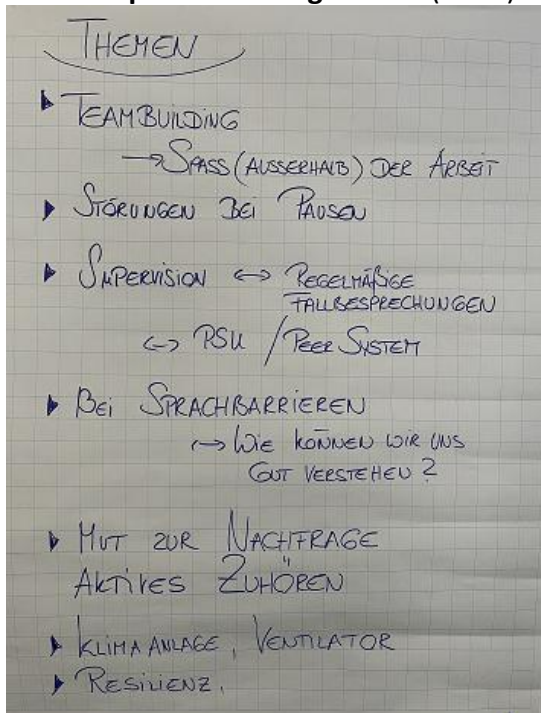 THEMEN
▶ TEAMBUILDING
→ SPASS (AUSSERHALB) DER ARBEIT
▶ STÖRUNGEN BEI PAUSEN
▶ SUPERVISION ↔ REGELMÄßIGE
FALLBESPRECHUNGEN
↔ PSU / PEER SYSTEM
▶ BEI SPRACHBARRIEREN
↪ WIE KÖNNEN WIR UNS
GUT VERSTEHEN?
▶ MUT ZUR NACHFRAGE
AKTIVES ZUHÖREN
▶ KLIMAANLAGE, VENTILATOR
▶ RESILIENZ.